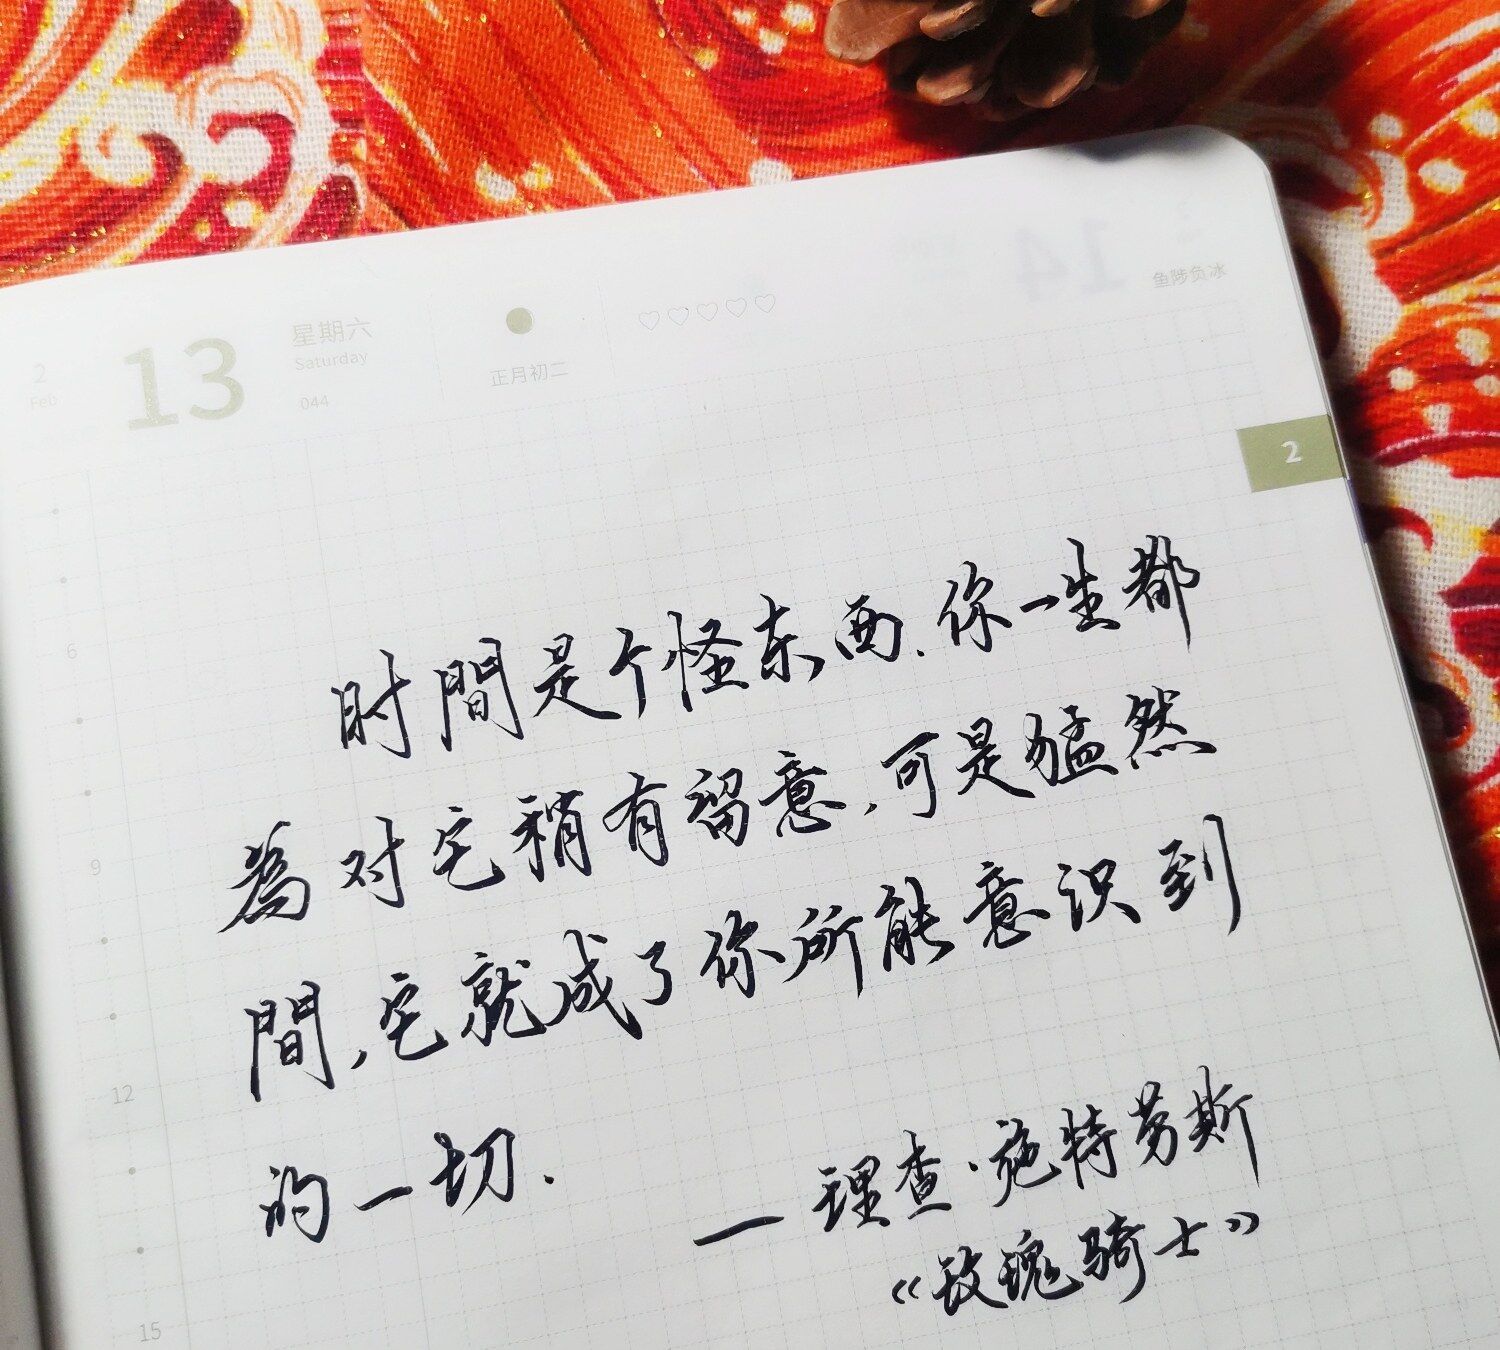 2
Feb
13
星期六
Saturday
044
正月初二
鱼陟负冰
2
时間是个怪东西.你一生都
為对它稍有留意,可是猛然
間,它就成了你所能意识到
的一切.
—理查·施特劳斯
《玫瑰骑士》
6
9
12
15